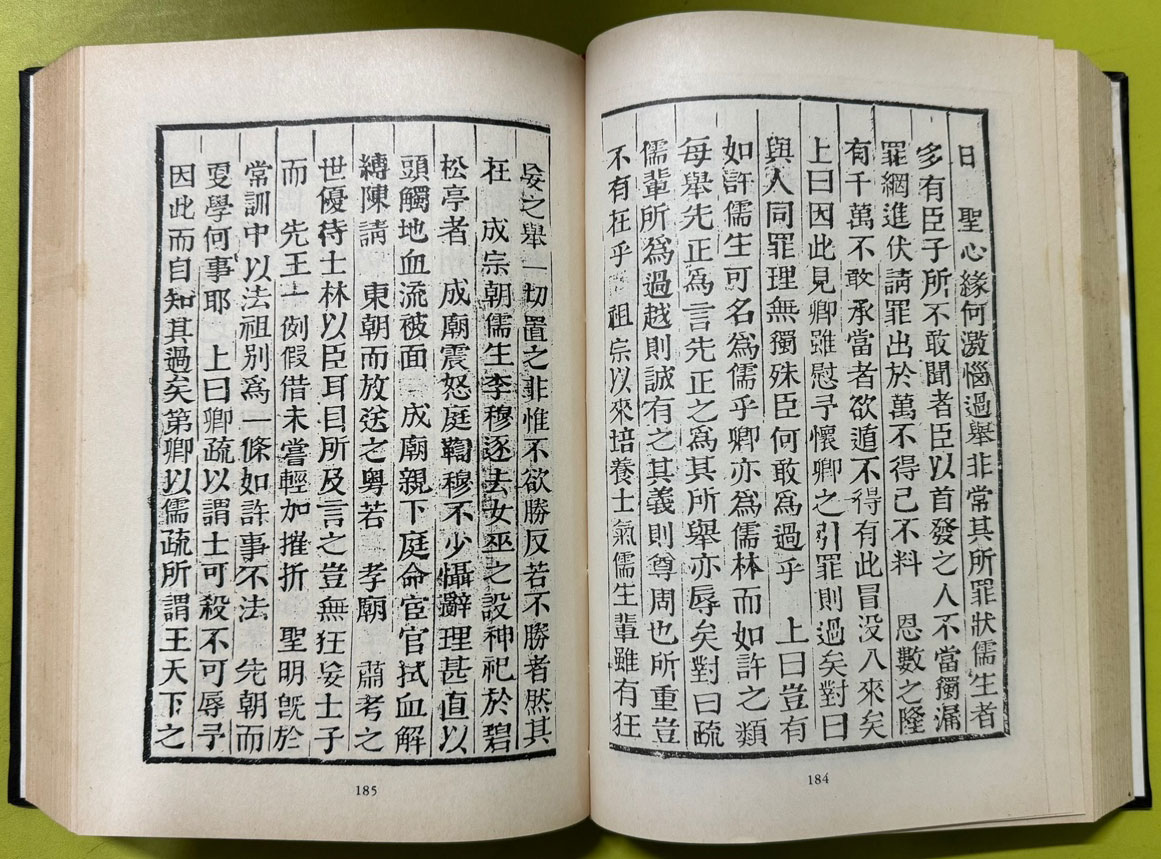 日　聖心緣何激惱過擧非常其所罪狀儒生者
多有臣子所不敢聞者臣以首發之人不當獨漏
罪網進伏請罪出於萬不得已不料　恩數之隆
有千萬不敢承當者欲遁不得有此冒没入來矣
上曰因此見卿雖慰予懷卿之引罪則過矣對曰
與人同罪理無獨殊臣何敢爲過乎　上曰豈有
如許儒生可名爲儒乎卿亦爲儒林而如許之類
每擧先正爲言先正之爲其所擧亦辱矣對曰疏
儒輩所爲過越則誠有之其義則尊周也所重豈
不有在乎　祖宗以來培養士氣儒生輩雖有狂
184
妄之擧一切置之非惟不欲勝反若不勝者然其
在　成宗朝儒生李穆逐去女巫之設神祀於碧
松亭者　成廟震怒庭鞫穆不少懾辭理甚直以
頭觸地血流被面　成廟親下庭命宦官拭血解
縛陳請　東朝而放送之粤若　孝廟　肅考之
世優待士林以臣耳目所及言之豈無狂妄士子
而　先王一例假借未嘗輕加摧折　聖明旣於
常訓中以法祖別爲一條如許事不法　先朝而
更學何事耶　上曰卿疏以謂士可殺不可辱予
因此而自知其過矣第卿以儒疏所謂王天下之
185